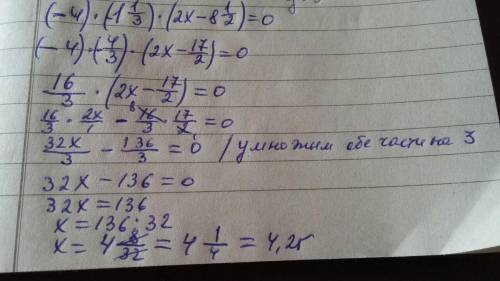 (-4)·(-1 1/3)·(2x-8 1/2)=0
(-4)·(-4/3)·(2x-17/2)=0
16/3·(2x-17/2)=0
16/3·2x/1-16/3·17/2=0
32x/3-136/3=0 /умножим обе части на 3
32x-136=0
32x=136
x=136:32
x=4 8/32=4 1/4=4,25